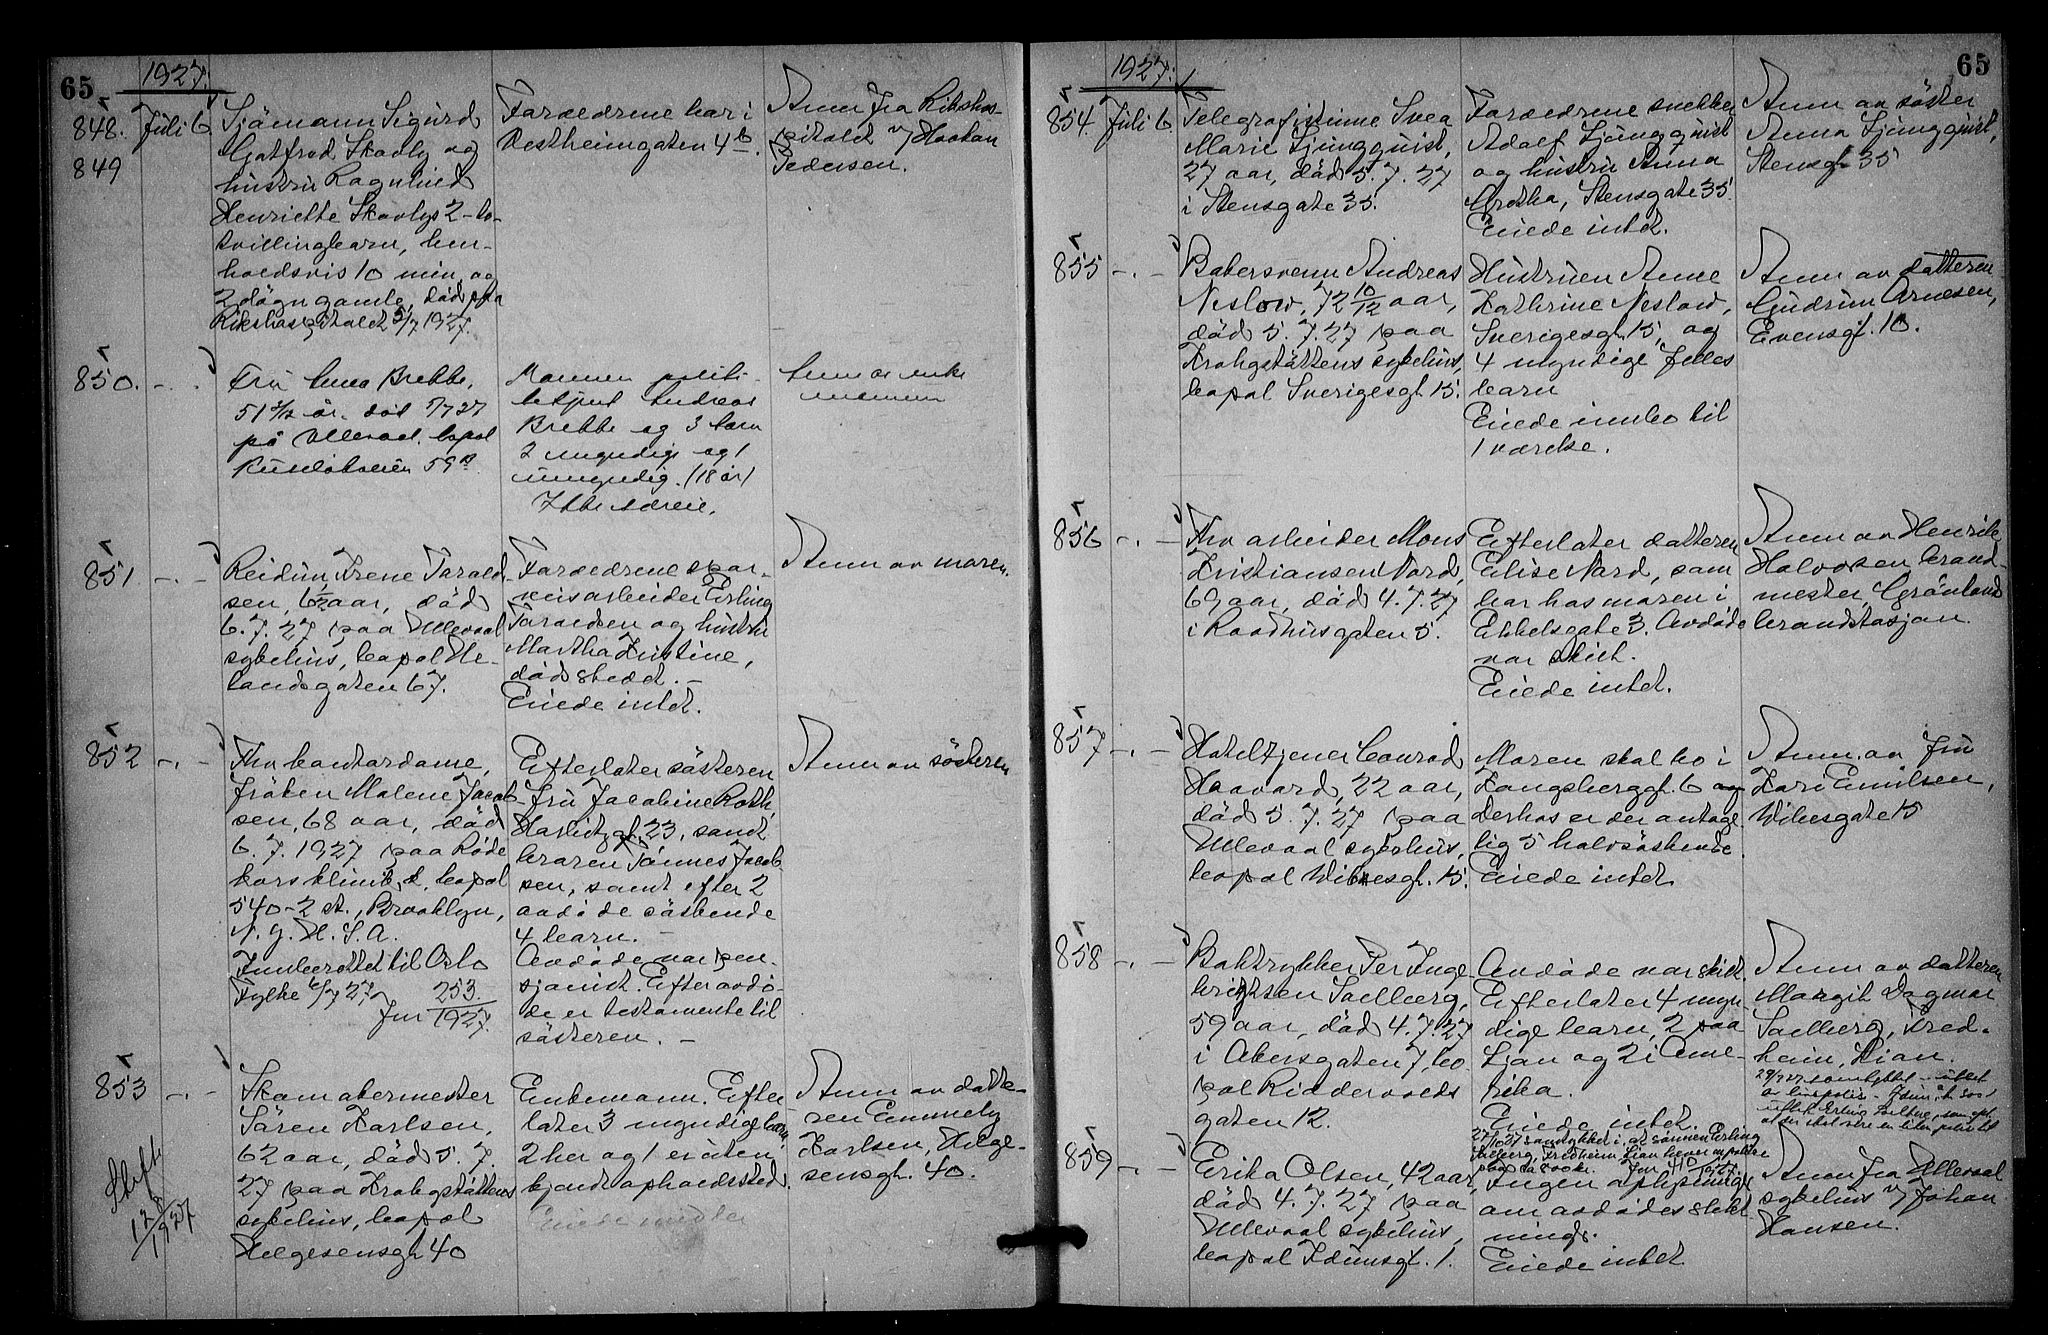 65
1927.
848.
849
Juli 6
Sjömann Sigurd
Gotfred Skovly og
hustru Ragnhild
Henriette Skovlys 2-to-
tvillingbarn, hen-
holdsvis 10 min. og
2 dögn gamle, död paa
Rikshospitalet 5/7 1927.
Forældrene bor i
Vestheimgaten 4b.
Anm. fra Rikshos-
pitalet v/ Haakon
Pedersen.
850. - . -
Fru Anna Brekke,
51 år. död 5/7 27
på Ullevål, bopæl
59
Mannen politi-
betjent Andreas
Brekke og 3 barn
2 myndige og 1
umyndig. (18 år)
Ikke særeie.
Anm av enke
mannen
851 -.-
Reidun Irene Tarald-
sen, 6 1/2 aar, död
6.7.27 paa Ullevaal
sykehus, bopæl He-
landsgaten 67.
Forældrene spor-
veisarbeider Erling
Taraldsen og hustru
Martha Kristine,
dödsstedet. -
Eiede intet.
Anm. av moren.
852 -.-
Fhv kontordame,
fröken Malene Jacob-
sen, 68 aar, död
6. 7. 1927 paa Røde
kors klinik, bopæl
540-2 st., Brooklyn,
N.Y. U.S.A.
Innberettet til Oslo
Fylke 6/7 27
Jnr 253/1927.
Efterlater søsteren
fru Jacobine Roth,
Harbitzgt. 23, samt
broren Tønnes Jacob-
sen, samt efter 2
avdöde söskende
4 barn. -
Avdöde var pen-
sjonist. Efter avdö-
de er testamente til
søsteren. -
Anm av søsteren
853 -.-
Skift
12/1927
Skomakermester
Sören Karlsen,
62 aar, död 5. 7.
27 paa Krohgstöttens
sykehus, bopæl
Helgesensgt 40
Enkemann. Efter-
later 3 myndige barn,
2 her og 1 er uten
kjendt opholdssted.
Eiede midler
Anm. av datte-
ren Emmely
Karlsen, Helge-
sensgt. 40.
65
1927.
854. Juli 6.
Telegrafistinne Svea
Marie Ljungquist,
27 aar, död 5. 7. 27
i Stensgate 35.
Forældrene snekker
Adolf Ljungquist
og hustru Anna
Stensgate 35.
Eiede intet.
Anm av søster
Anna Ljungquist,
Stensgt 35
855 -.-
Bakersvenn Andreas
Neslow, 72 10/12 aar,
död 5. 7. 27 paa
Krohgstöttens sykehus,
bopæl Sverigesgt 15.
Hustruen Anne
Kathrine Neslow,
Sverigesgt. 15, og
4 myndige felles
barn
Eiede innbo til
1 værelse.
Anm av datteren
Gudrun Arnesen,
Evensgt. 10.
856 -.-
Fhv arbeider Mons
Kristiansen Nord,
69 aar, död 4. 7. 27
i Raadhusgaten 5.
Efterlater datteren
Elise Nord, som
bor hos moren i
Eckelsgate 3. Avdöde
var skilt.
Eiede intet.
Anm av Henrik
Halvorsen, brand-
mester Grönland
brandstasjon.
857 -.-
Hotelltjener Conrad
Haavard, 22 aar,
död 5. 7. 27 paa
Ullevaal sykehus,
bopæl Wibesgt. 15.
Moren skal bo i
Kongsberggt. 6 og
derhos er der antage-
lig 5 halvsöskende.
Eiede intet
Anm. av fru
Kari Emilsen,
Wibesgate 15
858 -.-
Boktrykker Per Inge
brigtsen Solberg,
59 aar, död 4. 7. 27
i Akersgaten 7, bo
pæl Riddervolds
gaten 12.
Avdöde var skilt.
Efterlater 4 myn-
dige barn, 2 paa
Ljan og 2 i Ame-
rika.
Eiede intet.
27/10 27 samtykket i, at sønnen Erling
Solberg, Fredheim, Ljan hever en polise
Anm av datteren
Margit Dagmar
Solberg, Fred-
heim, Ljan.
859 -.-
Erika Olsen, 42 aar,
död 4. 7. 27 paa
Ullevaal sykehus,
bopæl Idunsgt. 1.
Ingen oplysninger
om avdödes slekt
ninger.
Eiede intet
Anm fra Ullevaal
sykehus v/ Johan
Hansen.